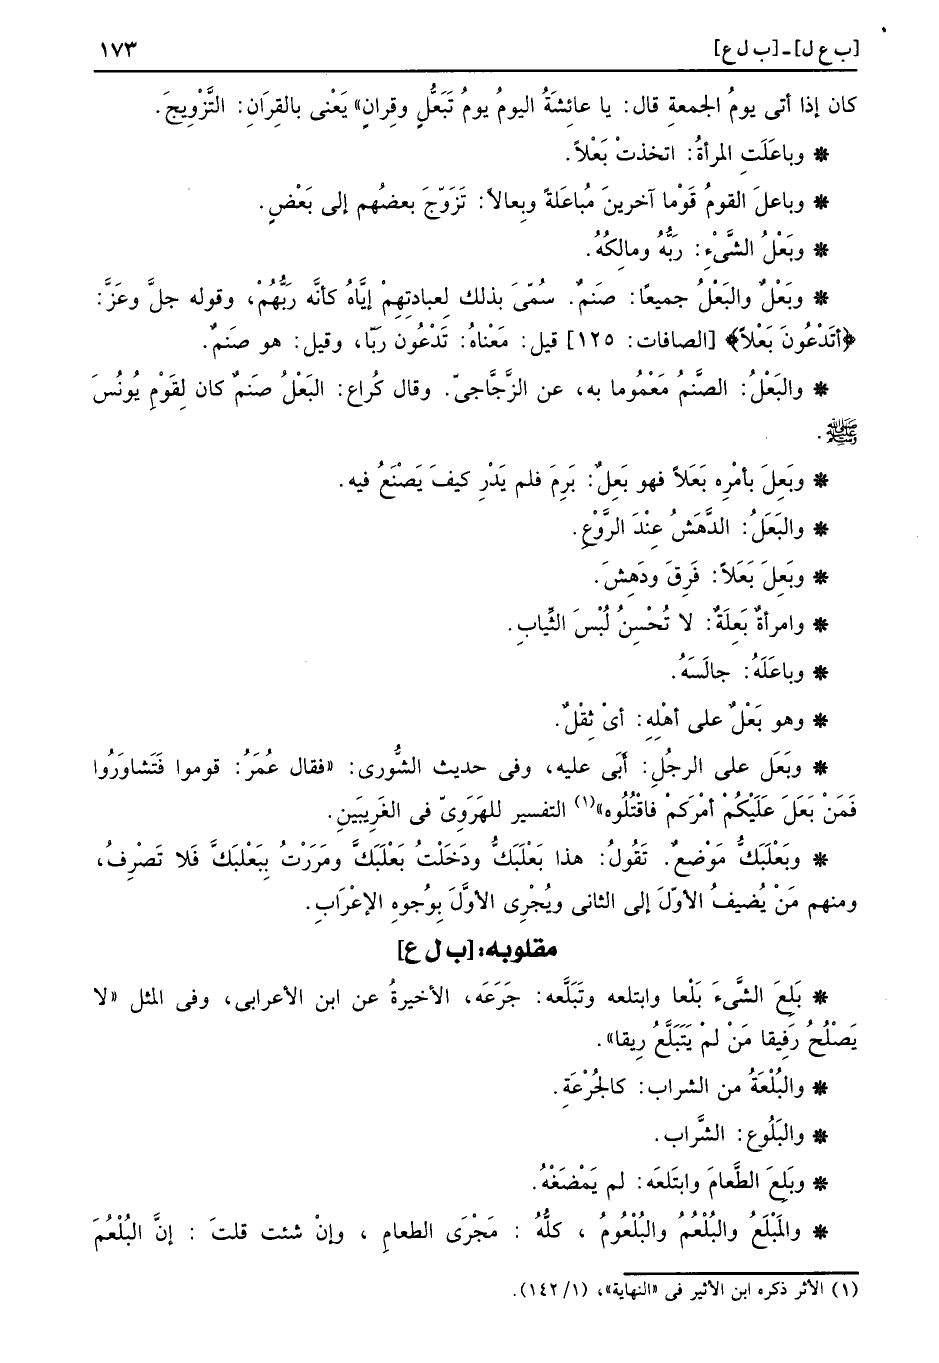 [ب ع ل] ـ [ب ل ع] ١٧٣
كان إذا أتى يومُ الجمعةِ قال: يا عائِشَةُ اليومُ يومُ تَبَعُّلٍ وقِرانٍ» يَعْنى بالقِرَانِ: التَّزْوِيجَ.
* وباعَلَتِ المرأةُ: اتخذتْ بَعْلاً.
* وباعلَ القومُ قَوْما آخرينَ مُباعَلةً وبِعالاً: تَزَوّجَ بعضُهم إلى بَعْضٍ.
* وبَعْلُ الشَّىْءِ: رَبُّهُ ومالِكُهُ.
* وبَعْلٌ والبَعْلُ جميعًا: صَنمٌ. سُمّىَ بذلك لِعبادتِهِمْ إيَّاهُ كأنَّه رَبُّهُمْ، وقوله جلَّ وعَزَّ:
﴿أتَدْعُونَ بَعْلاً﴾ [الصافات: ١٢٥] قيل: مَعْناهُ: تَدْعُون ربّا، وقيل: هو صَنمٌ.
* والبَعْلُ: الصَّنمُ مَعْمُوما به، عن الزَّجَّاجىّ. وقال كُراع: البَعْلُ صَنمٌ كان لِقَوْمِ يُونُسَ
ﷺ.
* وبَعِلَ بأمْرِه بَعَلاً فهو بَعِلٌ: بَرِمَ فلم يَدْرِ كيفَ يَصْنَعُ فيه.
* والبَعَلُ: الدَّهَشُ عِنْدَ الرَّوْعِ.
* وبَعِلَ بَعَلاً: فَرِقَ ودَهِشَ.
* وامرأةٌ بَعِلَةٌ: لا تُحْسِنُ لُبْسَ الثِّيابِ.
* وباعَلَهُ: جالَسَهُ.
* وهو بَعْلٌ على أهْلِهِ: أىْ ثِقْلٌ.
* وبَعَل على الرجُلِ: أَبَى عليه، وفى حديث الشُّورى: «فقال عُمَرُ: قوموا فَتَشاوَرُوا
فَمَنْ بَعَلَ عَلَيْكُمْ أمْرَكمْ فاقْتُلُوه»(١) التفسير للهَرَوىّ فى الغَرِيبَينِ.
* وبَعْلَبَكُّ مَوْضعٌ. تَقُولُ: هذا بَعْلَبَكُّ ودَخَلْتُ بَعْلَبَكَّ ومَرَرْتُ بِبَعْلبَكَّ فَلا تَصْرِفُ،
ومنهم مَنْ يُضيفُ الأوّلَ إلى الثانى ويُجْرِى الأوَّلَ بِوُجوهِ الإعْرَابِ.
مقلوبه: [ب ل ع]
* بَلِعَ الشَّىءَ بَلْعا وابتلعه وتَبَلَّعه: جَرَعَه، الأخيرةُ عن ابن الأعرابى، وفى المثل «لا
يَصْلُحُ رَفِيقا مَنْ لمْ يَتَبَلَّعُ رِيقا».
* والبُلْعَةُ من الشراب: كالجُرْعَةِ.
* والبَلُوع: الشَّراب.
* وبَلِعَ الطَّعامَ وابتَلعَه: لم يَمْضَغْهُ.
* والمَبْلَعُ والبُلْعُمُ والبُلْعُومُ ، كلُّهُ : مَجْرَى الطعامِ ، وإنْ شئت قلتَ : إنَّ البُلْعُمَ
(١) الأثر ذكره ابن الأثير فى «النهاية»، (١٤٢/١).